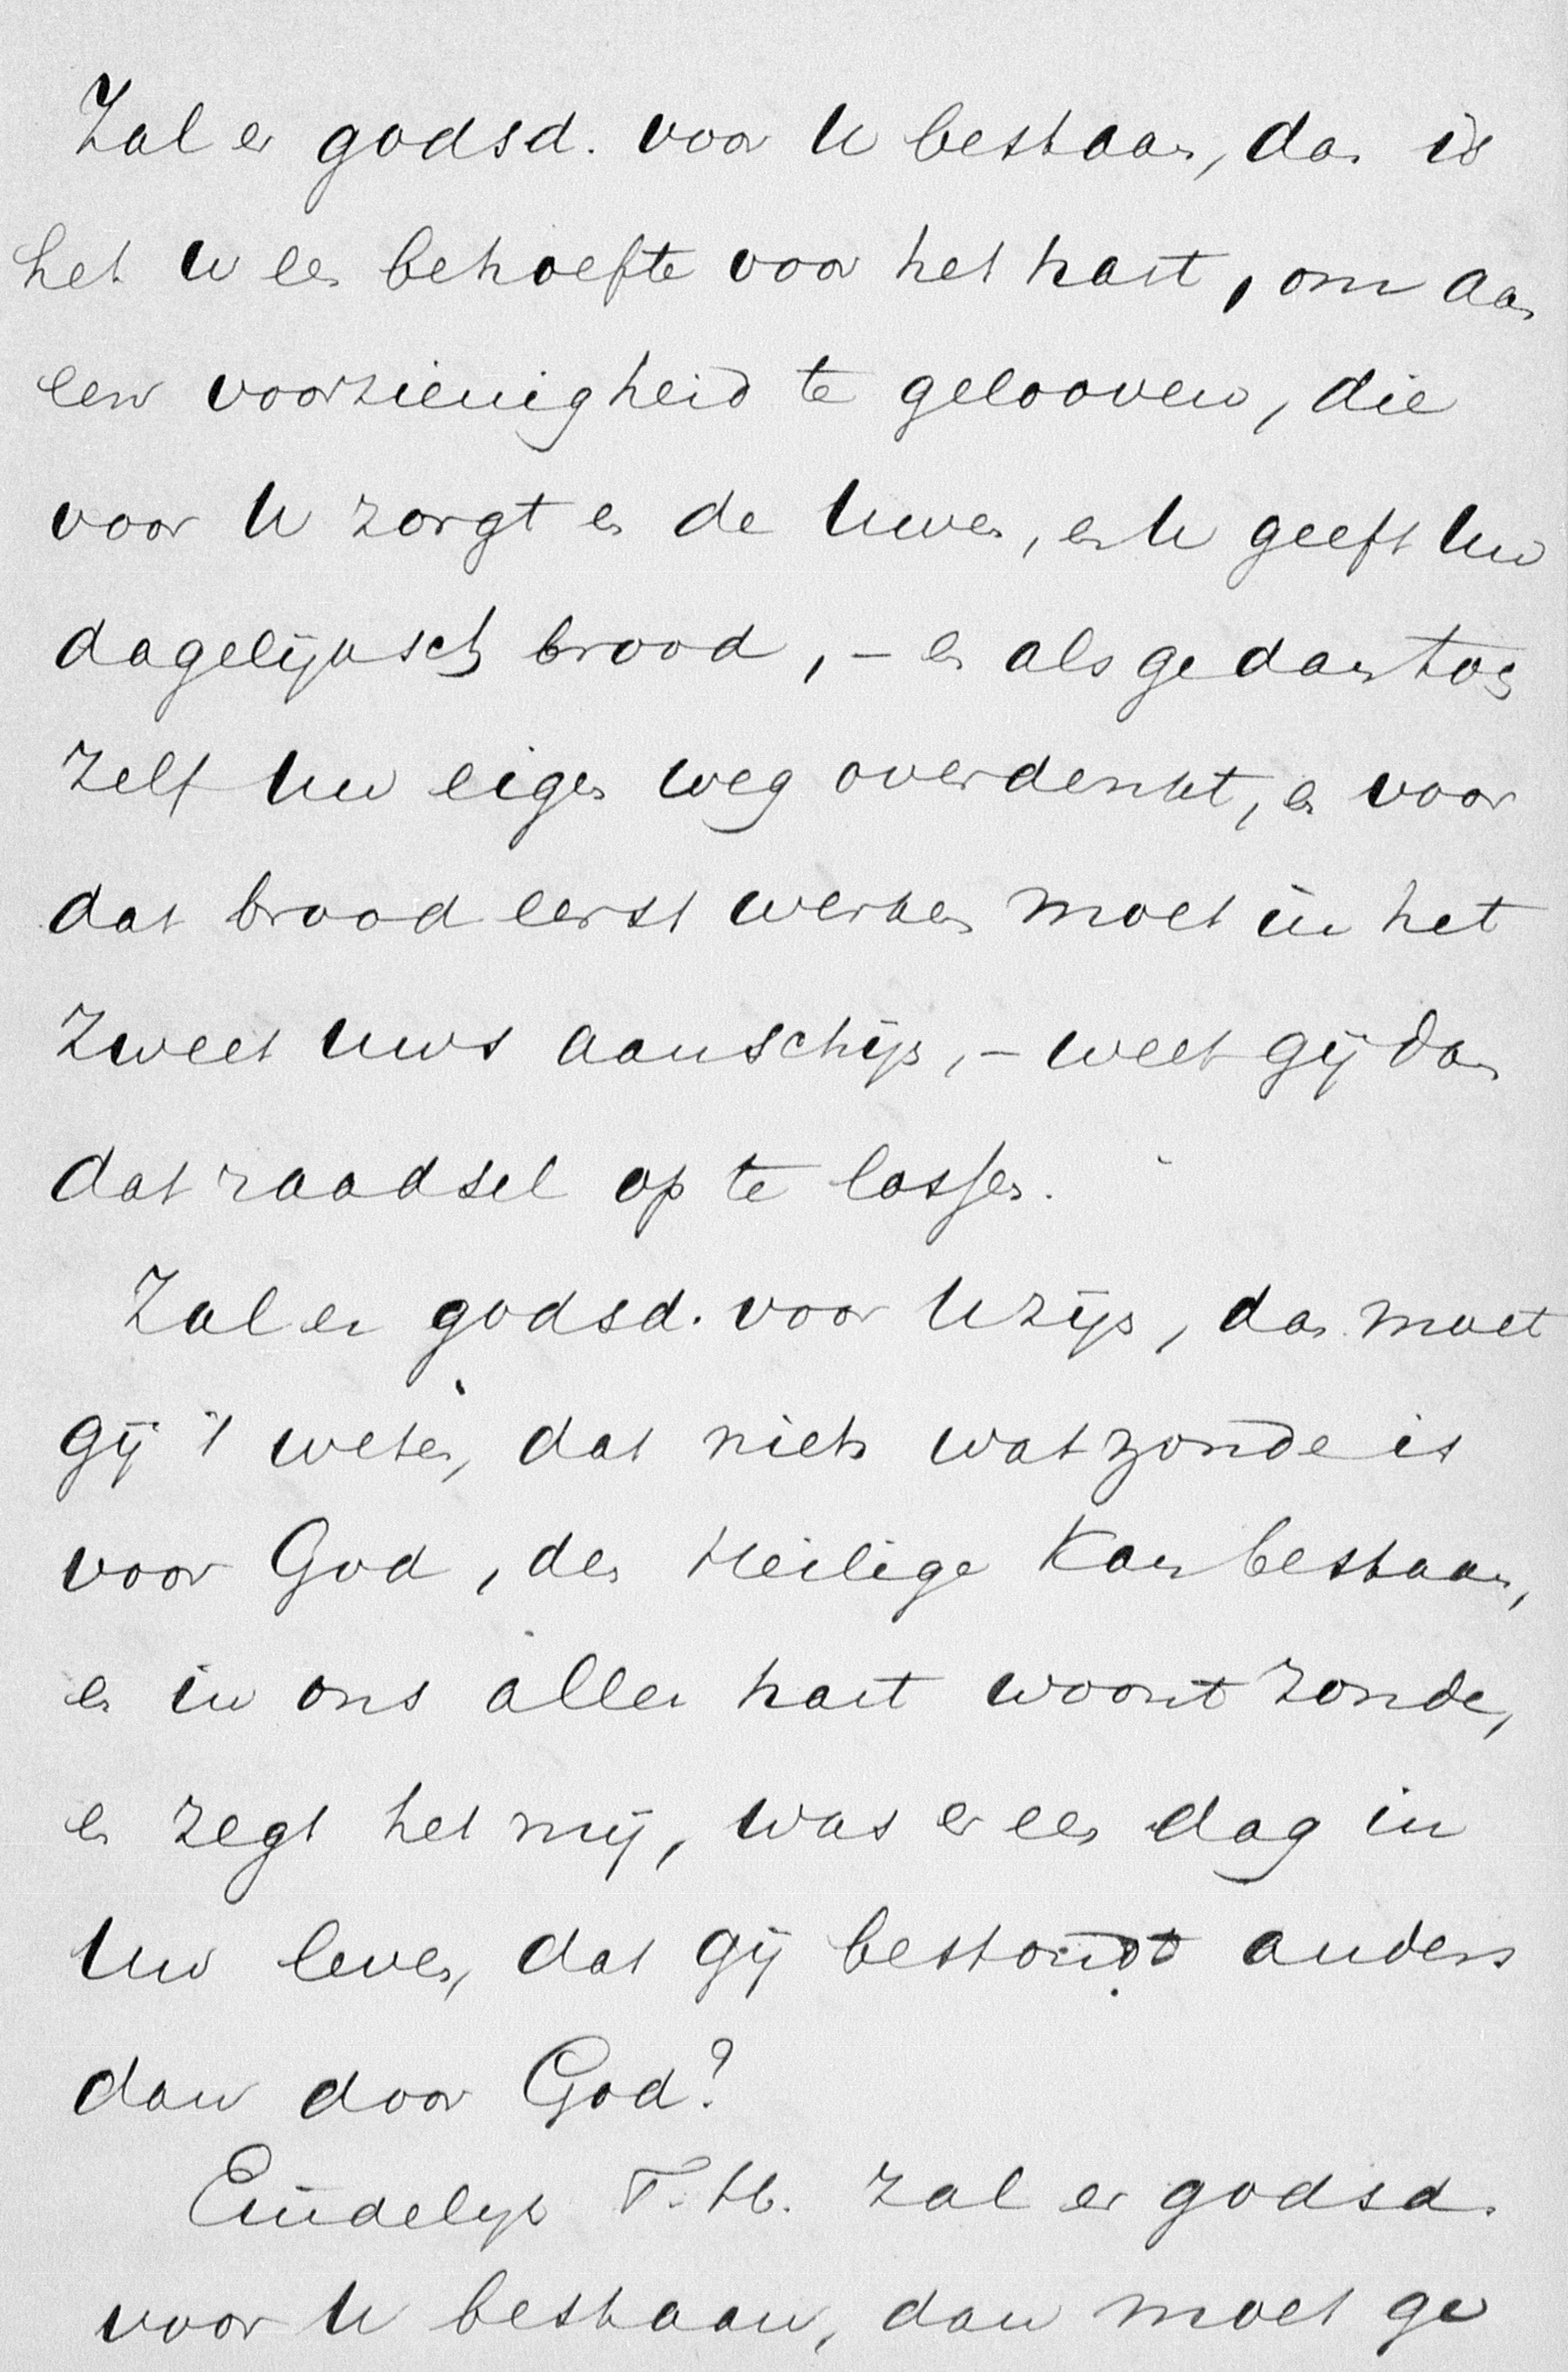 Zal er godsd. voor U bestaan, dan is
het U een behoefte voor het hart, om aan
een voorzienigheid te gelooven, die
voor U zorgt en de Uwen, en U geeft Uw
dagelijksch brood, – en als ge dan toch
zelf Uw eigen weg overdenkt, en voor
dat brood eerst werken moet in het
zweet uws aanschijns, – weet gij dan
dat raadsel op te lossen.
Zal er godsd. voor U zijn, dan moet
gij 't weten, dat niets wat zonde is
voor God, den Heilige kan bestaan,
en in ons aller hart woont zonde,
en zegt het mij, was er een dag in
Uw leven, dat gij bestondt anders
dan door God?
Eindelijk T. H. zal er godsd.
voor U bestaan, dan moet ge